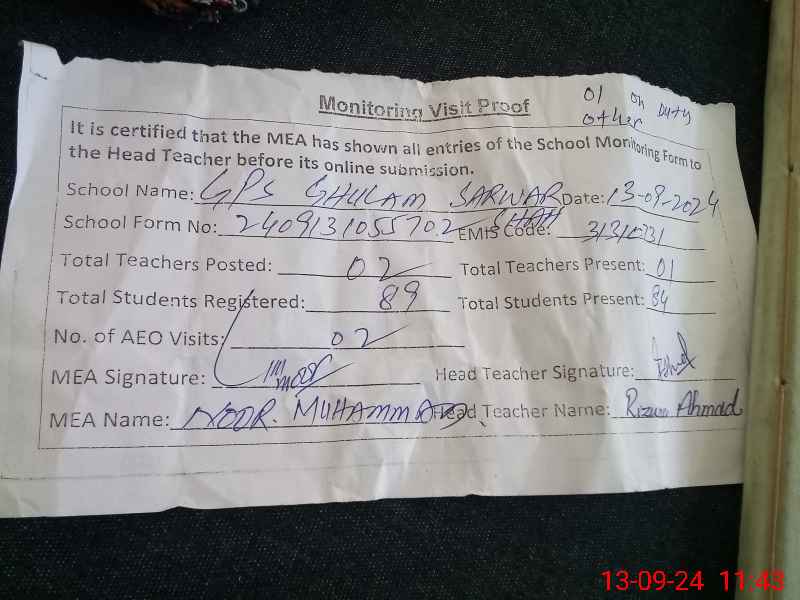 Monitoring Visit Proof
01 on Duty
other
It is certified that the MEA has shown all entries of the School Monitoring Form to
the Head Teacher before its online submission.
School Name: GPS GHULAM SARWAR Date: 13-09-2024
SHAH
School Form No: 2409131055702 EMIS Code:
Total Teachers Posted: 02 Total Teachers Present: 01
Total Students Registered: 89 Total Students Present: 84
No. of AEO Visits: 02
MEA Signature: Head Teacher Signature:
MEA Name: NOOR. MUHAMMAD Head Teacher Name: Rizwan Ahmad
13-09-24 11:43